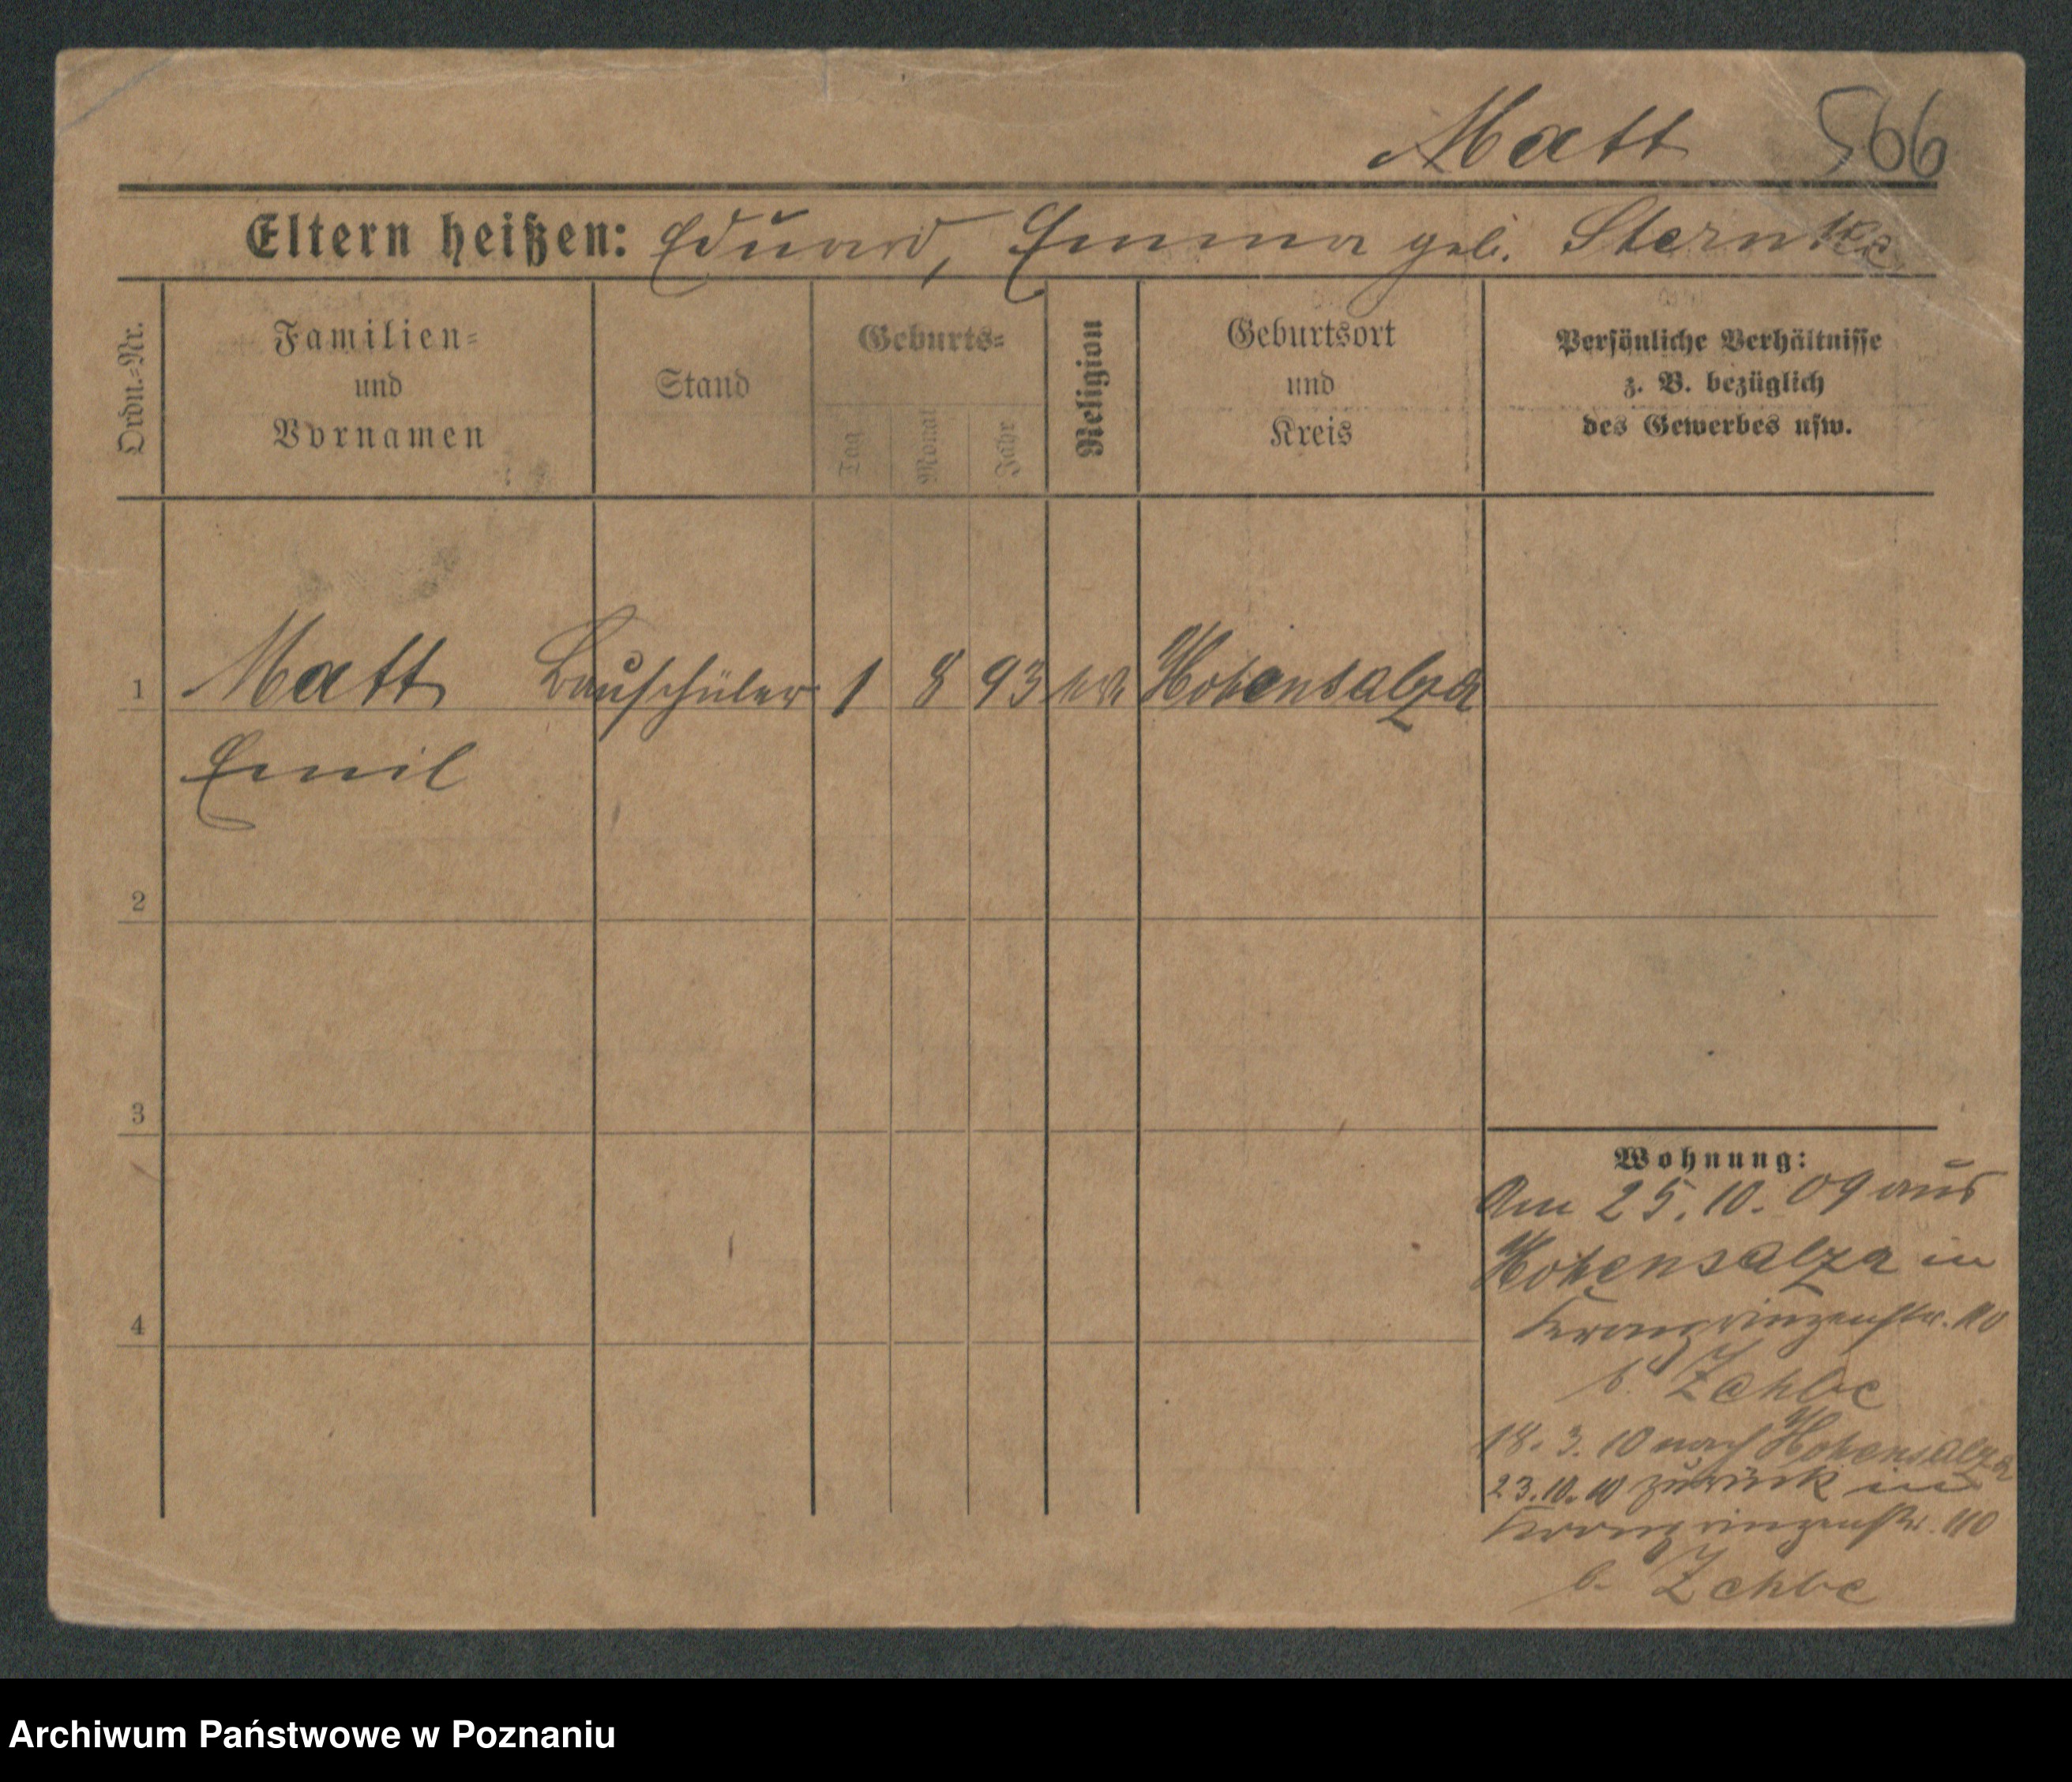 Matt 566
Eltern heißen: Eduard, Emma geb. Sternke
Ordn.=Nr.
Familien=
und
Vornamen
Stand
Geburts=
Tag
Monat
Jahr
Religion
Geburtsort
und
Kreis
Persönliche Verhältnisse
z. B. bezüglich
des Gewerbes usw.
1 Matt Bauschüler 1 8 93 Hohensalza
Emil
2
3
4
Wohnung:
Am 25. 10. 09 aus
Hohensalza in
Kronprinzenstr. 110
b. Zehbe
18. 3. 10 nach Hohensalza
23. 10. 10 zurück in
Kronprinzenstr. 110
b. Zehbe
Archiwum Państwowe w Poznaniu